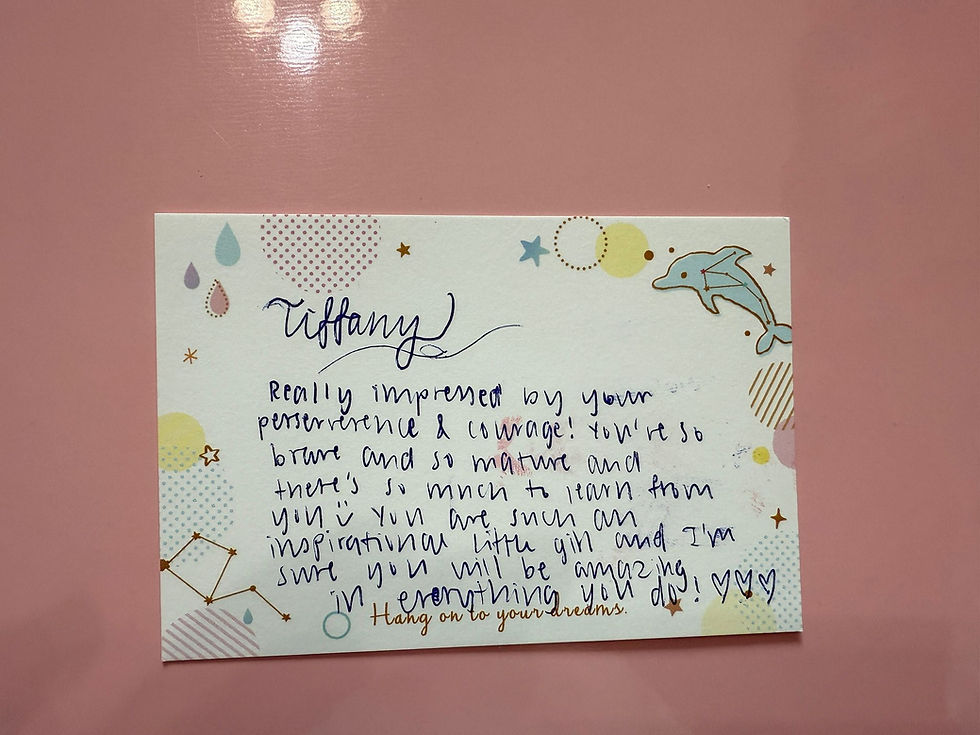 Tiffany
Really impressed by your
perserverence & courage! You're so
brave and so mature and
there's so much to learn from
you :) You are such an
inspirational little girl and I'm
sure you will be amazing
in everything you do! ♡♡♡
Hang on to your dreams.